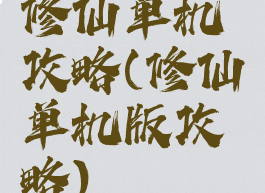 修仙单机
攻略(修仙
单机版攻
略)